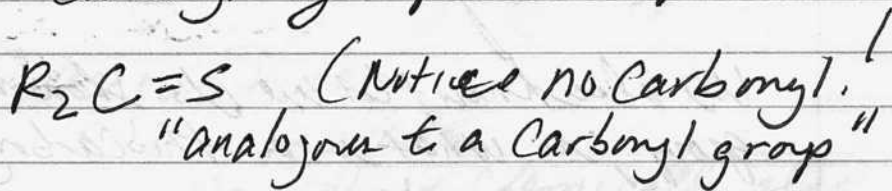 R₂C=S (Notice no Carbonyl!
"analogous to a Carbonyl group"